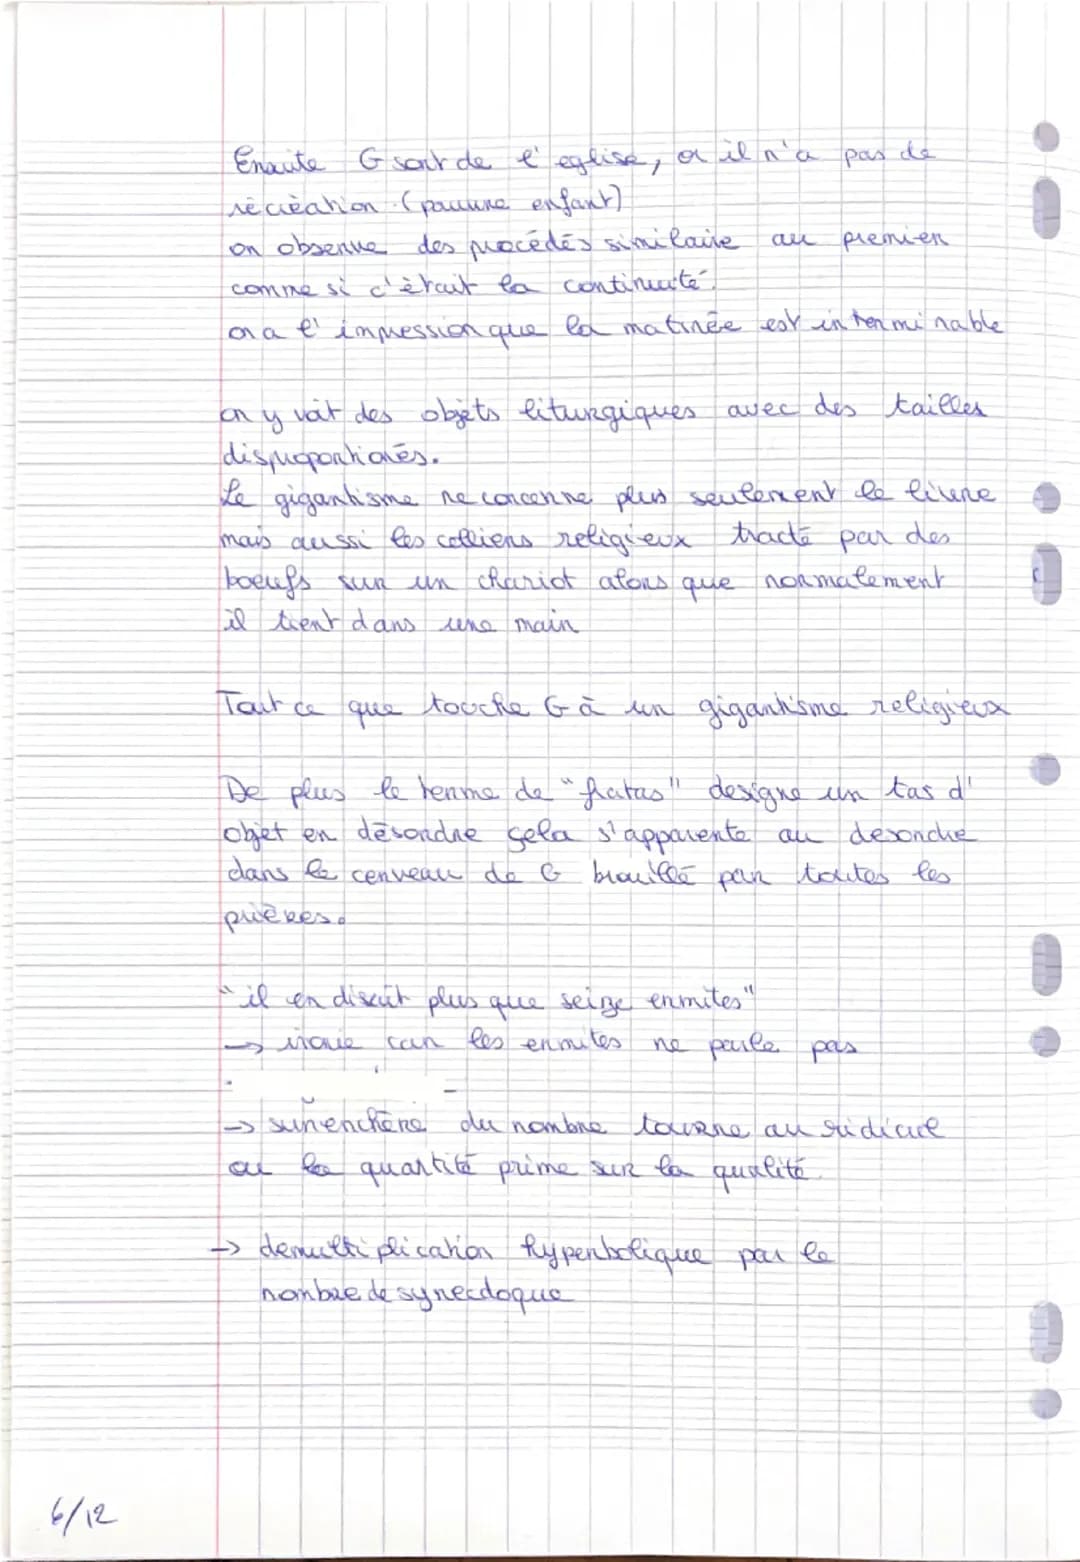 Ensuite G sort de l'eglise, or il n'a pas de
récréation (pauvre enfant)
on observe des procédés similaire au premier
comme si c'était la continuité.
on a l'impression que la matinée est interminable
on y voit des objets liturgiques avec des tailles
disproportionés.
Le gigantisme ne concerne plus seulement le livre
mais aussi les colliers religieux tracté par des
boeufs sur un chariot alors que normalement
il tient dans une main
Tout ce que touche G à un gigantisme religieux
De plus le terme de "fratas" designe un tas d'
objet en désordre cela s'apparente au desordre
dans le cerveau de G brouillé par toutes les
prières.
"il en disait plus que seize ermites"
-> ironie car les ermites ne parle pas
-> surenchère du nombre tourne au ridicule
ou la quantité prime sur la qualité.
-> demultiplication hyperbolique par le
nombre de synecdoque
6/12